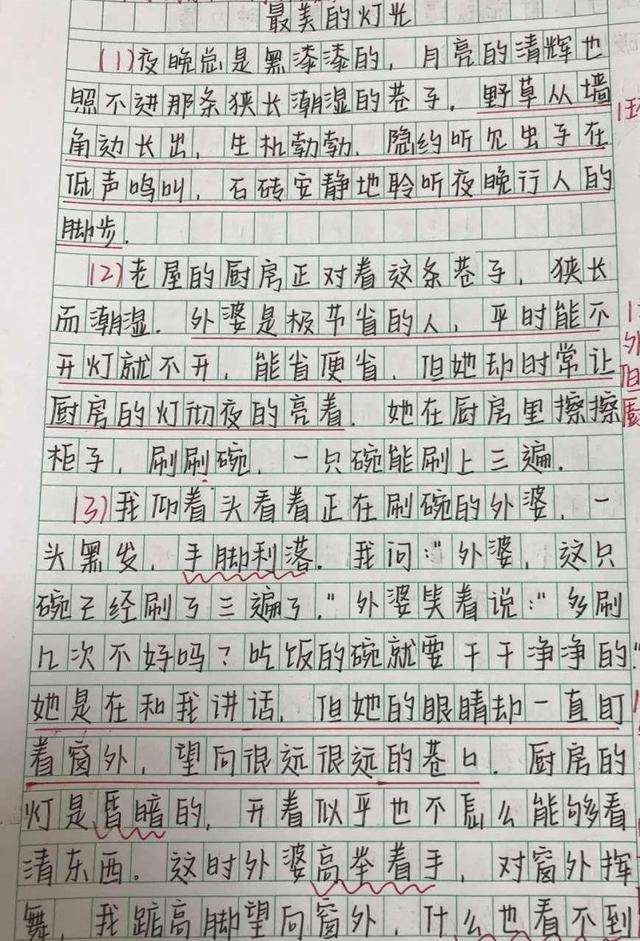 最美的灯光
(1)夜晚总是黑漆漆的，月亮的清辉也
照不进那条狭长潮湿的巷子，野草从墙
角边长出，生机勃勃，隐约听见虫子在
低声鸣叫，石砖安静地聆听夜晚行人的
脚步.
(2)老屋的厨房正对着这条巷子，狭长
而潮湿.外婆是极节省的人，平时能不
开灯就不开，能省便省，但她却时常让
厨房的灯彻夜的亮着.她在厨房里擦擦
柜子，刷刷碗，一只碗能刷上三遍.
(3)我仰着头看着正在刷碗的外婆，一
头黑发，手脚利落.我问："外婆，这只
碗已经刷了三遍了."外婆笑着说："多刷
几次不好吗？吃饭的碗就要干干净净的."
她是在和我讲话，但她的眼睛却一直盯
着窗外，望向很远很远的巷口.厨房的
灯是昏暗的，开着似乎也不怎么能够看
清东西.这时外婆高举着手，对窗外挥
舞，我踮高脚望向窗外，什么也看不到